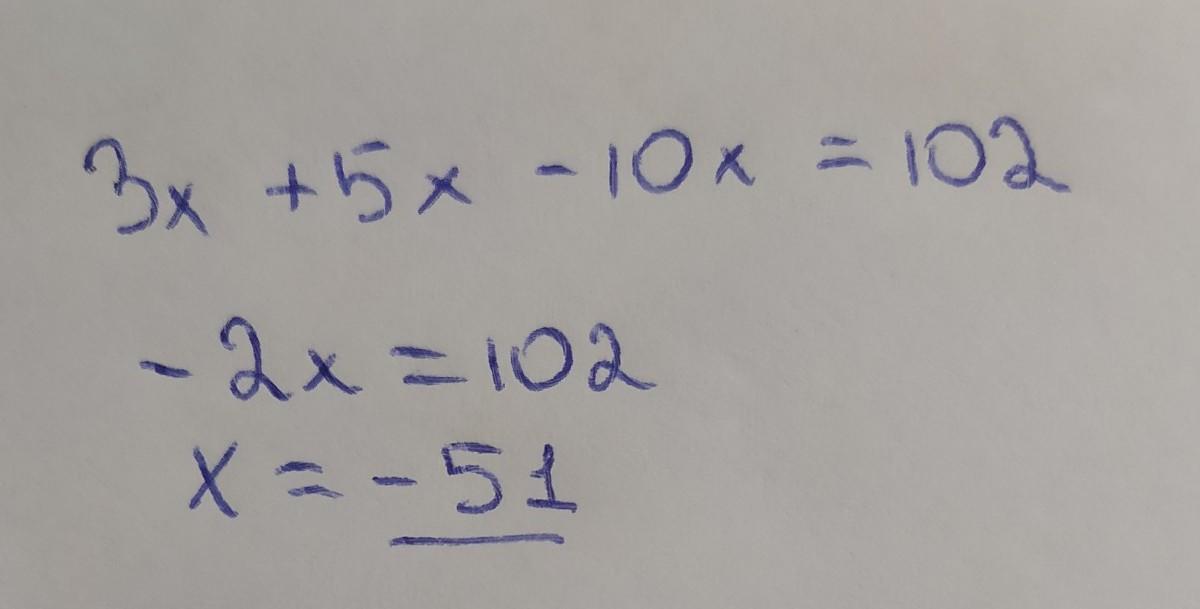 3x + 5x - 10x = 102
- 2x = 102
x = - 51